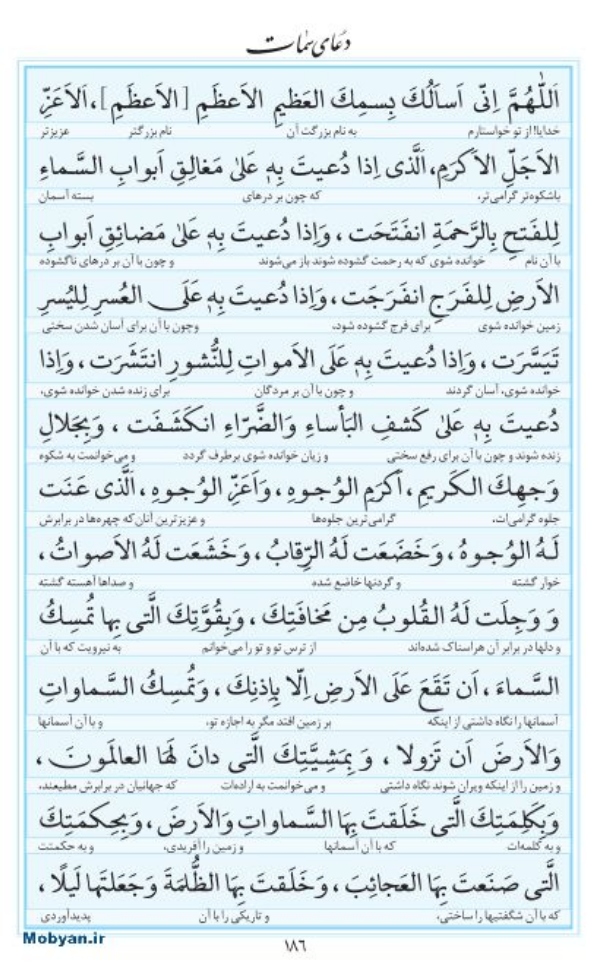 دعای سمات
اَللّٰهُمَّ اِنّی اَسأَلُكَ بِسمِكَ العَظیمِ الاَعظَمِ [الاَعظَمِ]، اَلاَعَزِّ
خدایا! از تو خواستارم به نام بزرگت آن نام بزرگتر عزیزتر
الاَجَلِّ الاَكرَمِ، اَلَّذی اِذا دُعیتَ بِهِ عَلیٰ مَغالِقِ اَبوابِ السَّماءِ
باشکوه‌تر گرامی‌تر، که چون بر درهای بسته آسمان
لِلفَتحِ بِالرَّحمَةِ انفَتَحَت ، وَاِذا دُعیتَ بِهِ عَلیٰ مَضائِقِ اَبوابِ
با آن نام خوانده شوی که به رحمت گشوده شوند باز می‌شوند و چون با آن بر درهای ناگشوده
الاَرضِ لِلفَرَجِ انفَرَجَت ، وَاِذا دُعیتَ بِهِ عَلَی العُسرِ لِلیُسرِ
زمین خوانده شوی برای فرج گشوده شود، وچون با آن برای آسان شدن سختی
تَیَسَّرَت ، وَاِذا دُعیتَ بِهِ عَلَی الاَمواتِ لِلنُّشورِ انتَشَرَت ، وَاِذا
خوانده شوی، آسان گردند و چون با آن بر مردگان برای زنده شدن خوانده شوی،
دُعیتَ بِهِ عَلیٰ كَشفِ البَأساءِ وَالضَّرّاءِ انكَشَفَت ، وَبِجَلالِ
زنده شوند و چون با آن برای رفع سختی و زیان خوانده شوی برطرف گردد و می‌خوانمت به شکوه
وَجهِكَ الكَریمِ ، اَكرَمِ الوُجوهِ ، وَاَعَزِّ الوُجوهِ ، اَلَّذی عَنَت
جلوه گرامی‌ات، گرامی‌ترین جلوه‌ها و عزیزترین آنان که چهره‌ها در برابرش
لَهُ الوُجوهُ ، وَخَضَعَت لَهُ الرِّقابُ ، وَخَشَعَت لَهُ الاَصواتُ ،
خوار گشته و گردنها خاضع شده و صداها آهسته گشته
وَ وَجِلَت لَهُ القُلوبُ مِن مَخافَتِكَ ، وَبِقُوَّتِكَ الَّتی بِها تُمسِكُ
و دلها در برابر آن هراسناک شده‌اند از ترس تو و تو را می‌خوانم به نیرویت که با آن
السَّماءَ ، اَن تَقَعَ عَلَی الاَرضِ اِلّا بِاِذنِكَ ، وَتُمسِكُ السَّماواتِ
آسمانها را نگاه داشتی از اینکه بر زمین افتد مگر به اجازه تو، و با آن آسمانها
وَالاَرضَ اَن تَزولا ، وَ بِمَشِیَّتِكَ الَّتی دانَ لَهَا العالَمونَ ،
و زمین را از اینکه ویران شوند نگاه داشتی و می‌خوانمت به اراده‌ات که جهانیان در برابرش مطیعند،
وَبِكَلِمَتِكَ الَّتی خَلَقتَ بِهَا السَّماواتِ وَالاَرضَ ، وَبِحِكمَتِكَ
و به کلمه‌ات که با آن آسمانها و زمین را آفریدی، و به حکمتت
الَّتی صَنَعتَ بِهَا العَجائِبَ ، وَخَلَقتَ بِهَا الظُّلمَةَ وَجَعَلتَها لَیلًا ،
که با آن شگفتیها را ساختی، و تاریکی را با آن پدیدآوردی
Mobyan.ir
۱۸۶